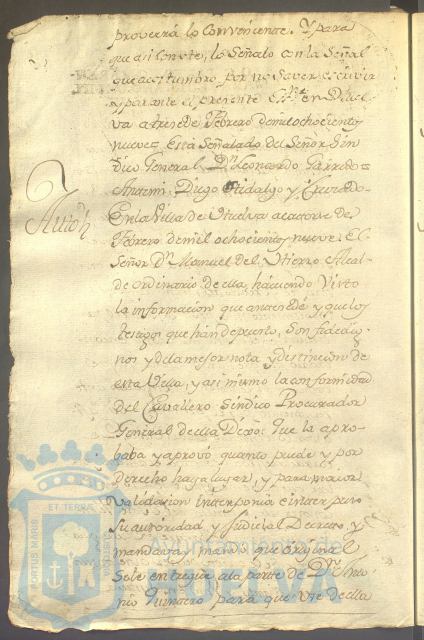 proverá lo conveniente. Y para
que asi conste, lo Señalo con la Señal
que acostumbro por no Saver escrivir
y por ante el presente en Huel-
va a trese de Febrero demilochocient.
nueve = Esta Señalado del Señor Sin
dico General, Dn. Leonardo Garrido =
Antemi. Diego Hidalgo y
Auto
En la Villa de Huelva a catorce de
Febrero demil ochocient. nueve. El
Señor Dn. Manuel del Hierro Alcal-
de ordinario de ella, haviendo Visto
la informacion que antesede y que los
testigos que han depuesto, Son
nos y dela mejor nota y distincion de
esta Villa, y asi mismo la conformidad
del Cavallero Sindico Procurador
General de ella Dixo: Que la apro-
baba y aprovó quanto puede y por
derecho haya lugar, y para maior
validacion interponia e interpuso
Su autoridad y Judicial Decreto, y
mandava, y mandó que original
Sele entregue ala parte de Dn.
nio Quintero para que Vse de ella
ET TERRA
PORTUS MARIS
CUSTODIA
Ayuntamiento de
HUELVA